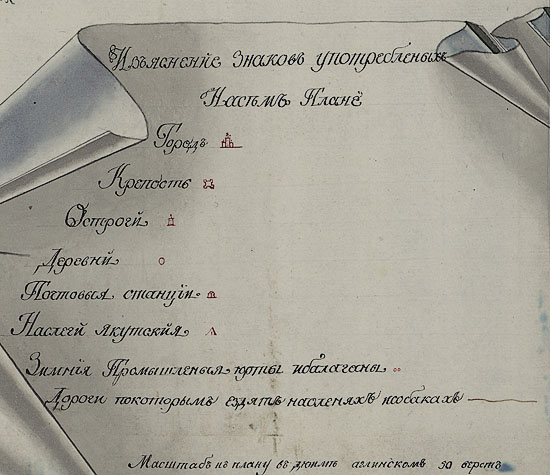 Изъяснение знаковъ употребленыхъ
Насѣмъ Планѣ
Городъ
Крепость
Остроги
Деревни
Почтовыя станціи
Наслеги якутскія
Зимнія Промышленыя юрты ибалаганы
Дороги покоторымъ ездятъ наоленяхъ исобакахъ
Масштабъ къ плану въ дюймѣ аглинскомъ 50 верстъ